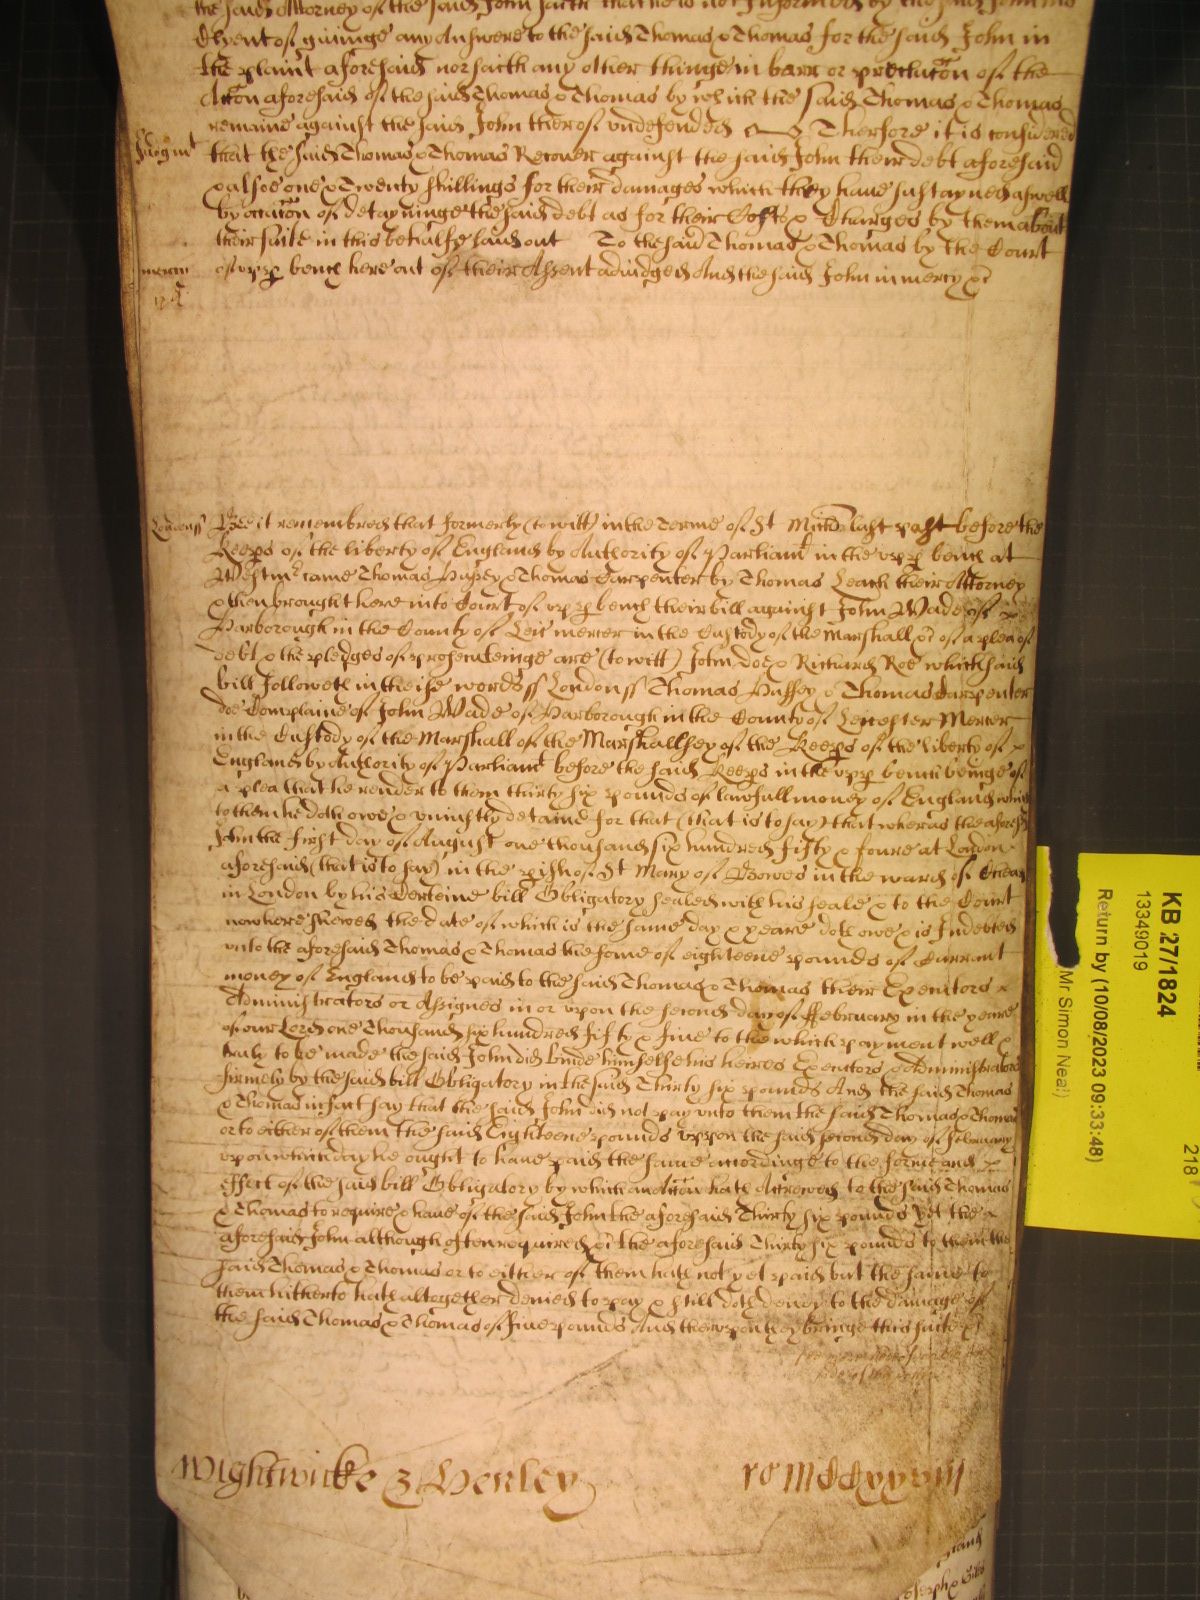 the said Attorney of the said John saith that he is not Informed by the said John his
Clyent of giuinge any Answere to the said Thomas & Thomas for the said John in
the plaint aforesaid nor saith any other thinge in barr or preclucon of the
Accon aforesaid of the said Thomas & Thomas by which the said Thomas & Thomas
remaine against the said John therof vndefended Therfore it is considered
Judgmt that the said Thomas & Thomas Recouer against the said John their debt aforesaid
& alsoe one & Twenty shillings for their damages which they haue sustayned aswell
by occacon of detayninge the said debt as for their Costs & Charges by them about
their suite in this behalfe laid out To the said Thomas & Thomas by the Court
mercy of vpp bench here out of their Assent adiudged And the said John in mercy &c
Londonss Bee it remembred that formerly (to witt) in the Terme of St Mich last past before the
Keeps of the liberty of England by Authority of Parliamt in the vpp bench at
Westmr came Thomas Hussey & Thomas Carpenter by Thomas Leach their Attorney
& then brought here into Court of vpp bench their bill against John Wade of
Harborough in the County of Leic mercer in the Custody of the Marshall &c of a plea of
debt & the pledges of prosecuteinge are (to witt) John doe & Richard Roe which said
bill followeth in theise words ss Londonss Thomas Hussey & Thomas Carpenter
doe Complaine of John Wade of Harborough in the County of Leicester Mercer
in the Custody of the Marshall of the Marshallsey of the Keeps of the liberty of
England by Authority of Parliamt before the said Keeps in the vpp bench beinge of
a plea that he render to them thirty six pounds of lawfull money of England which
to them he doth owe & vniustly detaine for that (that is to say) that wheras the aforesd
John the first day of August one thousand six hundred fifty & foure at London
aforesaid (that is to say) in the pish of St Mary of Bowes in the ward of Cheap
in London by his Certeine bill Obligatory sealed with his seale & to the Court
now here shewed the date of which is the same day & yeare doth owe & is Indebted
vnto the aforesaid Thomas & Thomas the some of eighteene pounds of Currant
money of England to be paid to the said Thomas & Thomas their Executors
Administrators or Assignes in or vpon the second day of ffebruary in the yeare
of our Lord one Thousand six hundred fifty & fiue to the which payment well &
truly to be made the said John did binde himselfe his heires Executors & Administrators
firmely by the said bill Obligatory in the said Thirty six pounds And the said Thomas
& Thomas in fact say that the said John did not pay vnto them the said Thomas & Thomas
or to either of them the said Eighteene pounds vppon the said second day of february
vpon which day he ought to haue paid the same accordinge to the forme and
effect of the said bill Obligatory by which an Accon hath Accrewed to the said Thomas
& Thomas to require & haue of the said John the aforesaid Thirty six pounds Yet the
aforesaid John although often required &c the aforesaid Thirty six pounds to them the
said Thomas & Thomas or to either of them hath not yet paid but the same to
them hitherto hath altogether denied to pay & still doth deny to the damage of
the said Thomas & Thomas of fiue pounds And therevpon they bringe this suite &c
Wightwicke & Henley
ro mccxxviii
KB 27/1824
13349019
Return by (10/08/2023 09:33:48)
Mr Simon Neal